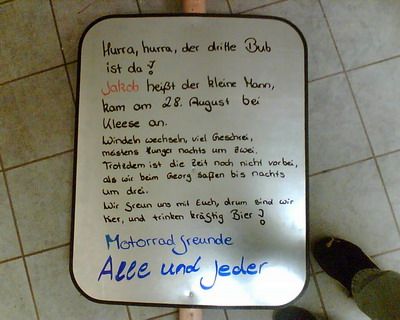 Hurra, hurra, der dritte Bub
ist da!
Jakob heißt der kleine Mann,
kam am 28. August bei
Kleese an.
Windeln wechseln, viel Geschrei,
meistens Hunger nachts um zwei.
Trotzdem ist die Zeit noch nicht vorbei,
als wir beim Georg saßen bis nachts
um drei.
Wir freun uns mit Euch, drum sind wir
hier, und trinken kräftig Bier!
Motorradfreunde
Alle und Jeder